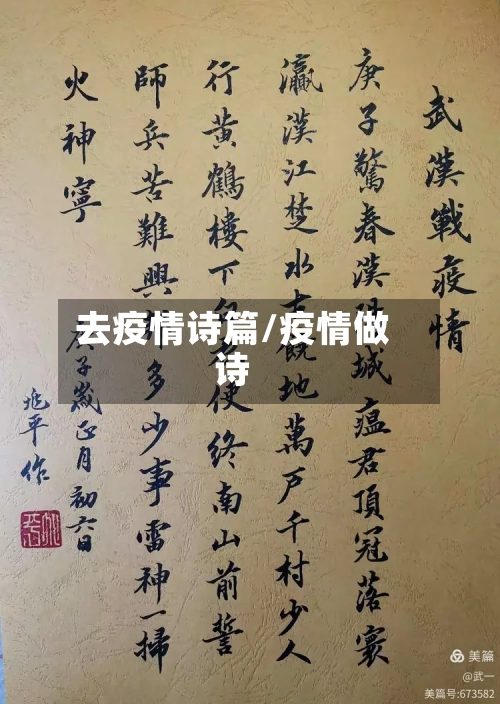 武漢戰疫情
庚子驚春漢城瘟君頂冠落寰
瀛漢江楚水地萬戶千村少人
行黃鶴樓下使終南山前誓
師兵苦難興多少事雷神一掃
火神寧
庚子歲正月初六日
兆平作
去疫情诗篇/疫情做
诗
美篇
@武一
美篇号:673582